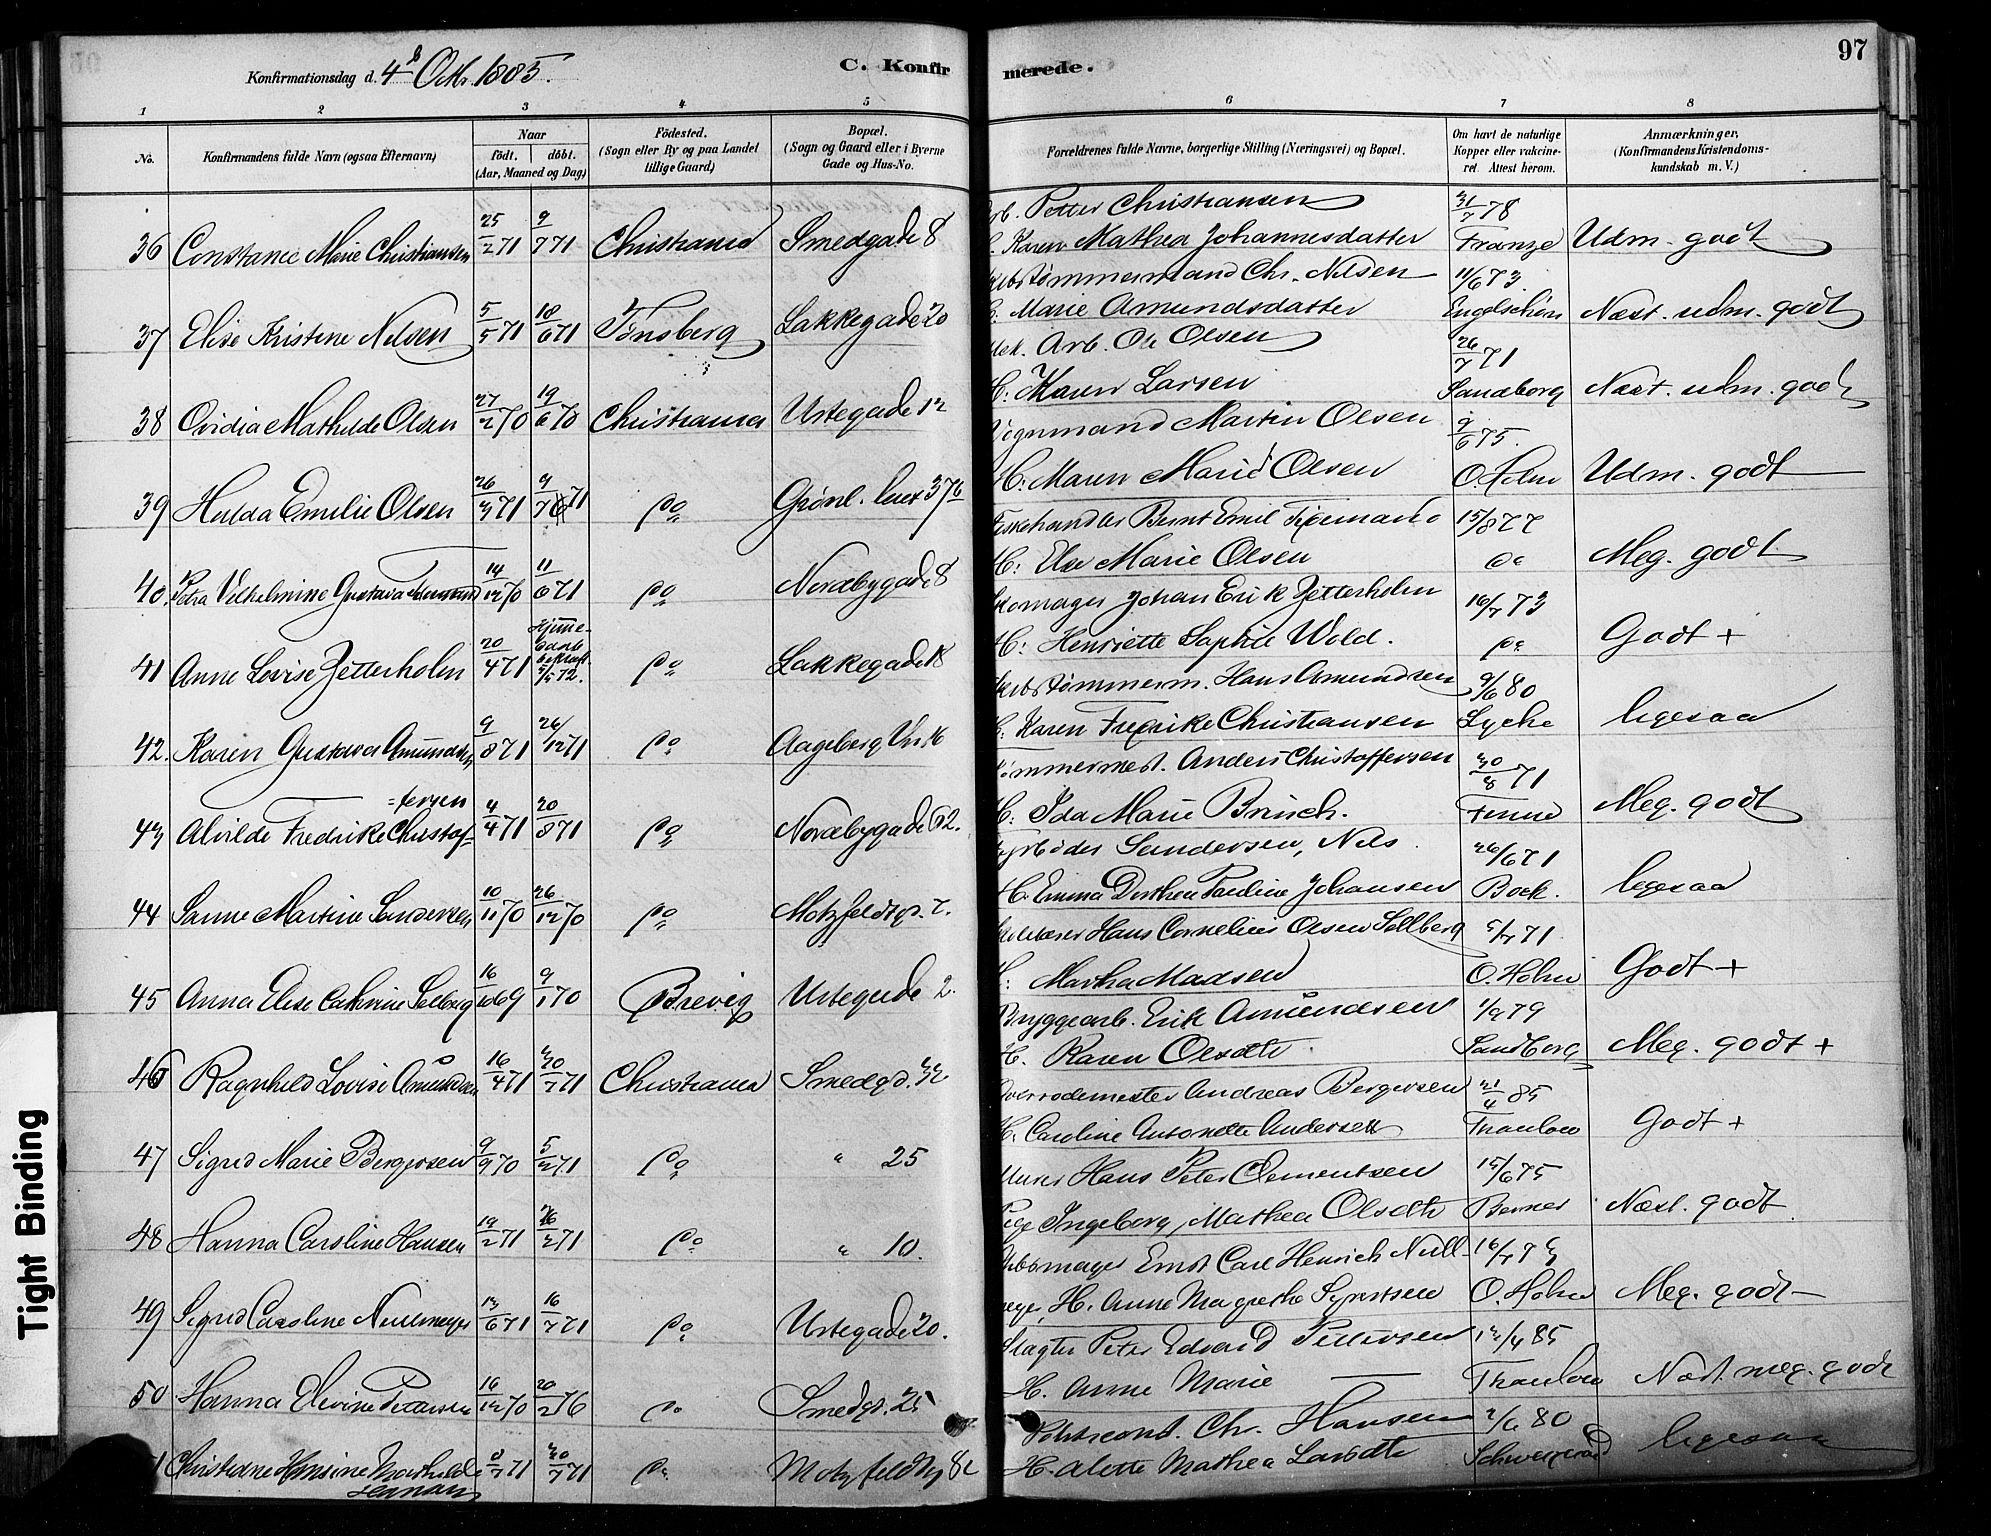 Konfirmationsdag d. 4 Oktr. 1885.
C. Konfirmerede.
97
1 2 3 4 5 6 7 8
No.
Konfirmandens fulde Navn (ogsaa Efternavn)
Naar
födt. döbt.
(Aar, Maaned og Dag)
Födested.
(Sogn eller By og paa Landet
tillige Gaard)
Bopæl.
(Sogn og Gaard eller i Byerne
Gade og Hus-No.
Forældrenes fulde Navne, borgerlige Stilling (Næringsvei) og Bopæl.
Om havt de naturlige
Kopper eller vakcine-
ret. Attest herom.
Anmærkninger,
(Konfirmandens Kristendoms-
kundskab m. V.)
Arb. Petter Christiansen 31/7 78
36 Constance Marie Christiansen 25/2 71 9/7 71 Christiania Smedgade 8 H. Karen Mathea Johannesdatter Udm. godt
Skibstømmermand Chr. Nilsen 11/6 73
37 Elise Kristine Nilsen 5/5 71 18/6 71 Tönsberg Lakkegade 20 H. Marie Amundsdatter Engelschön Næst. udm. godt
Mek. Arb. Ole Olsen 26/7 71
38 Ovidia Mathilde Olsen 27/2 70 19/6 70 Christiania Urtegade 12 H: Maren Larsen Sandborg Næst. udm. godt
Vognmand Martin Olsen 9/6 75.
39 Hulda Emilie Olsen 26/3 71 9/7 71 Do Grönl. leret 37 b H: Maren Marie Olsen O. Holm Udm. godt
Fiskehandler Bernt Emil 15/8 77
40. Petra Vilhelmine Gustava 14/12 70 11/6 71 Do Norébygade 8 H: Else Marie Olsen Do Meg. godt
Skomager Johan Erik Zetterholm 16/7 73
41 Anne Lovise Zetterholm 20/4 71 Hjemme- bekræft. 5/5 72. Do Lakkegade 18 H: Henriette Sophie Wold. Do Godt +
Skibstømmerm. Hans Amundsen 9/6 80
42. Karen Gustava Amundsen 9/8 71 26/12 71 Do Aageberg Vn. 16 H. Karen Fredrike Christiansen Lyche ligesaa
Tömmermest. Anders Christoffersen 30/8 71
43 Alvilde Fredrike Christof= =fersen 4/4 71 20/8 71 Do Norébygade 62. H: Ida Marie Brinch. Meg. godt
Fyrböder Sandersen, Nils 26/6 71
44 Sanne Martine Sandersen 10/11 70 26/12 70 Do Motzfeldtgr. 7. H. Emma Dorthea Pauline Johansen Boek. ligesaa
Hans Cornelius Olsen Sollberg 5/7 71
45 Anna Elise Cathrine Solberg 16/10 69 9/1 70 Brevig Urtegade 2. H: Martha Madsen O. Holm Godt +
Bryggearb. Erik Amundsen 1/9 79
46 Ragnhild Lovise Amundsen 16/4 71 30/7 71 Christiania Smedgd. 32 H. Karen Olsdtr Sandborg Meg. godt +
Overrodemester Andreas Bergersen 21/4 85
47 Sigrid Marie Bergersen 9/9 70 5/3 71 Do " 25 H. Caroline Antonette Andersen Thaulow Godt +
Murer Hans Peter Clementsen 15/6 75
48 Hanna Caroline Hansen 19/2 71 26/3 71 Do " 10. Pige Ingeborg Mathea Olsdtr Berner Næst. godt
Skomager Ernst Carl Henrich Null-
49 Sigrid Caroline Nullmeyer 13/6 71 16/7 71 Do Urtegade 20. meyer, H. Anne Magrethe Syvertsen O. Holm Meg. godt
Slagter Peter Edvard Pettersen 13/4 85
50 Hanna Elevine Pettersen 16/12 70 20/2 76 Do Smedgd. 25 H. Anne Marie — Thaulow Næst meg. godt
Politicont. Chr. Hansen 2/6 80
Christiane Hansine Mathilde Hansen 8/7 71 30/7 71 Do Motzfeldtg 8 H. Alette Mathea Larsdtr ligesaa
Tight Binding